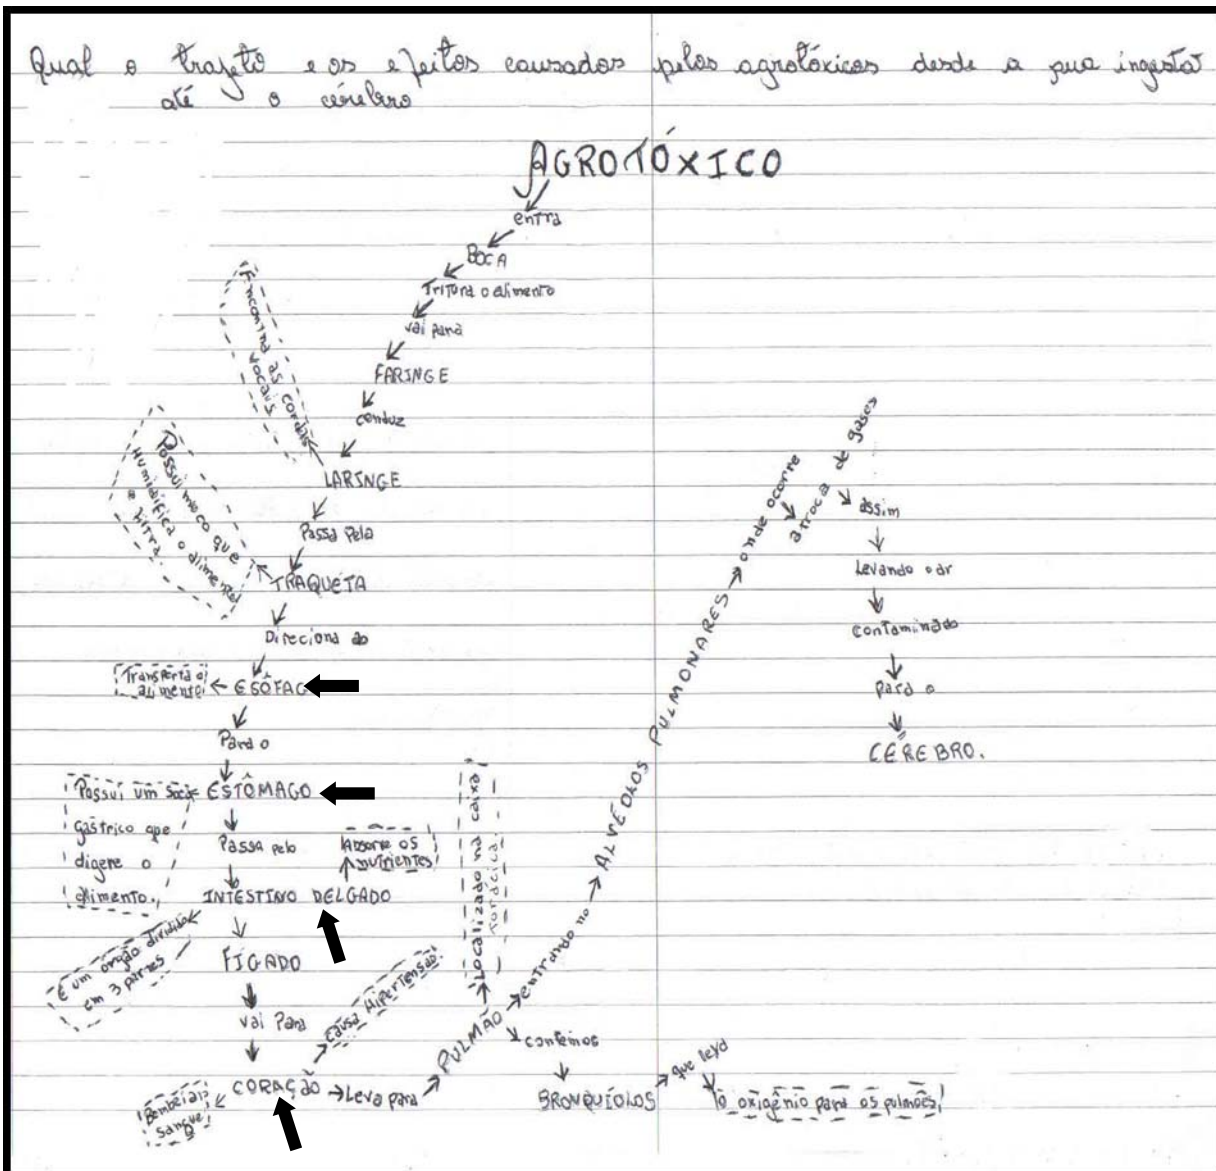 Qual o trajeto e os efeitos causados pelos agrotóxicos desde a sua ingesta
até o cérebro
AGROTÓXICO
entra
BOCA
Tritura o alimento
vai para
FARINGE
conduz
Encontra as cordas
vocais
LARINGE
Passa pela
Possui muco que
Humidifica o alimento
e filtra
TRAQUÉIA
Direciona ao
ESÔFAG
Transporta o
alimento
Para o
ESTÔMAGO
Possui um suco
gástrico que
digere o
alimento.
Passa pelo
Absorve os
nutrientes
INTESTINO DELGADO
É um orgão dividido
em 3 partes
FÍGADO
vai Para
CORAÇÃO
Bombeia
sangue
causa Hipertensão
Leva para
PULMÃO
Localizado na caixa
torácica.
contemos
BRONQUÍOLOS
que leva
o oxigênio para os pulmões
entrando no
ALVÉOLOS PULMONARES
onde ocorre
a troca de gases
assim
Levando o ar
contaminado
Para o
CÉREBRO.